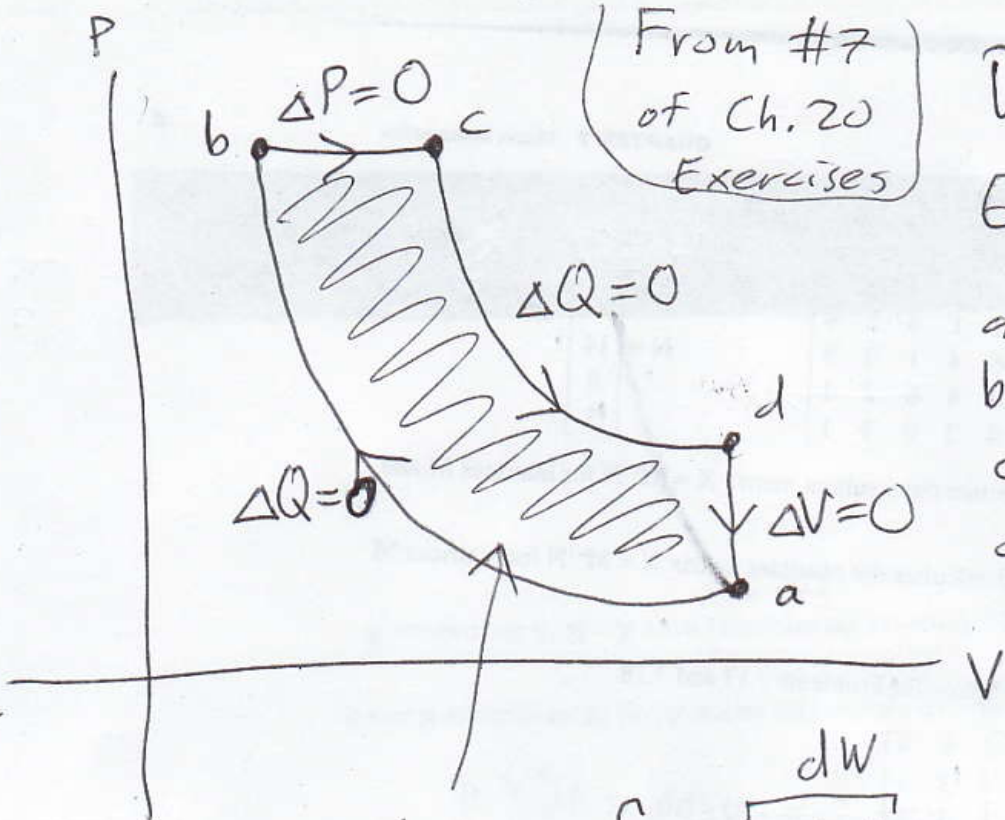 P
From #7
of Ch. 20
Exercises
ΔP=0
b
c
ΔQ=0
d
ΔQ=0
ΔV=0
a
V
dW